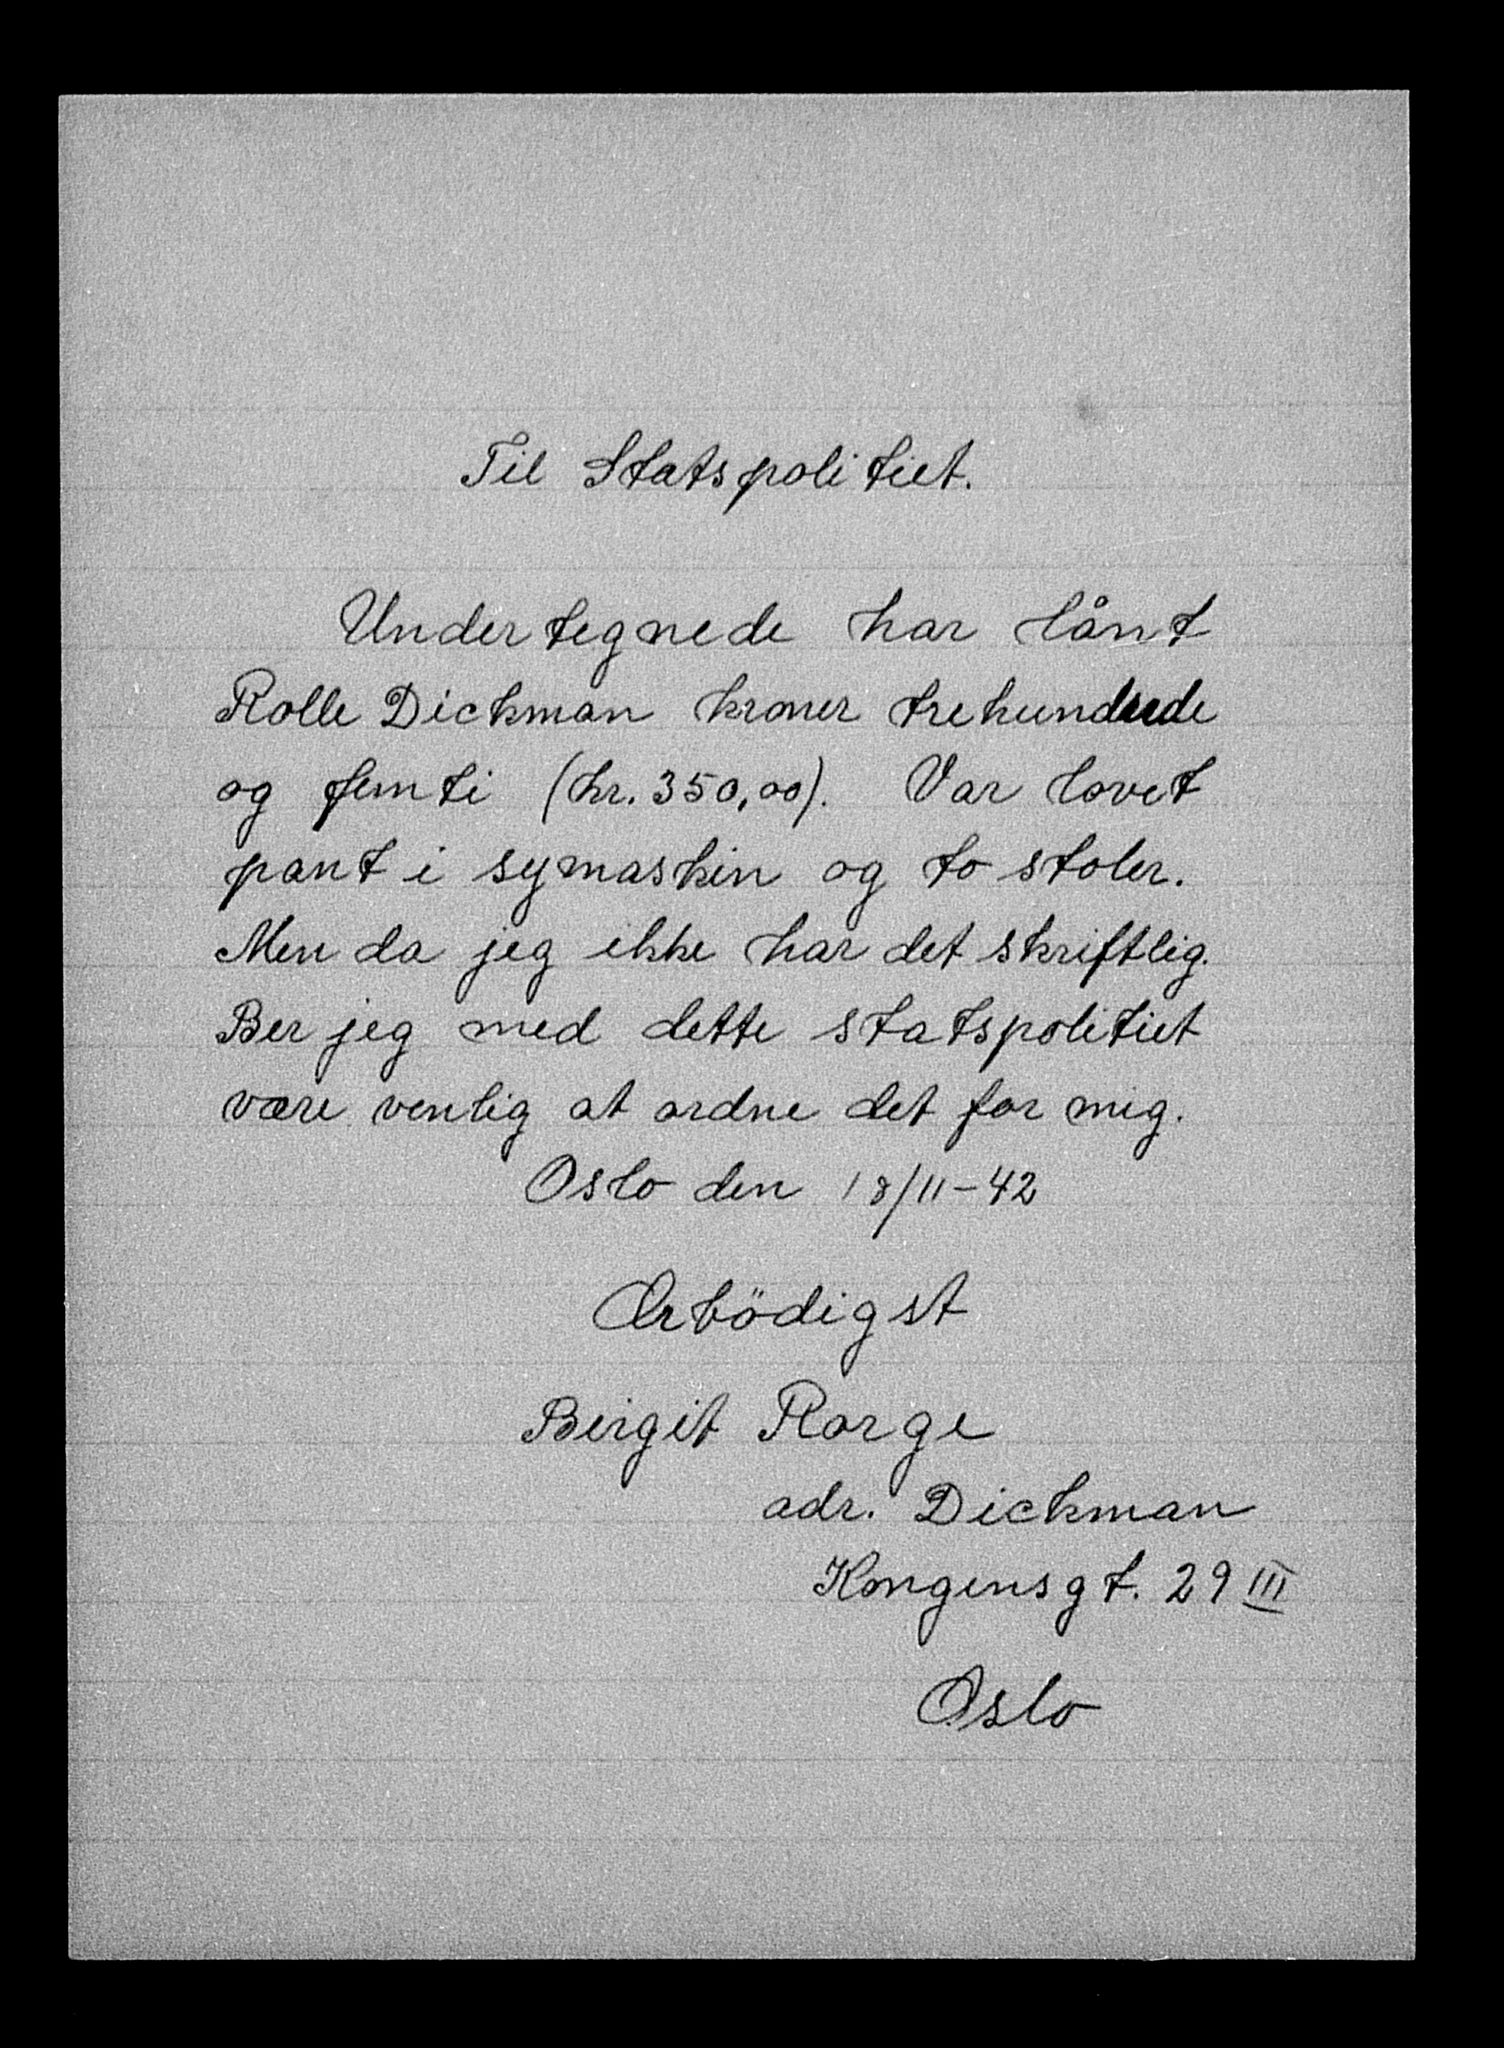 Til Statspolitiet.
Undertegnede har lånt
Rolle Dickman kroner trehundrede
og femti (kr. 350,00). Var lovet
pant i symaskin og to stoler.
Men da jeg ikke har det skriftlig.
Ber jeg med dette statspolitiet
være venlig at ordne det for mig.
Oslo den 18/11-42
Ærbödigst
Birgit Rorge
adr. Dickman
Kongensgt. 29 III
Oslo